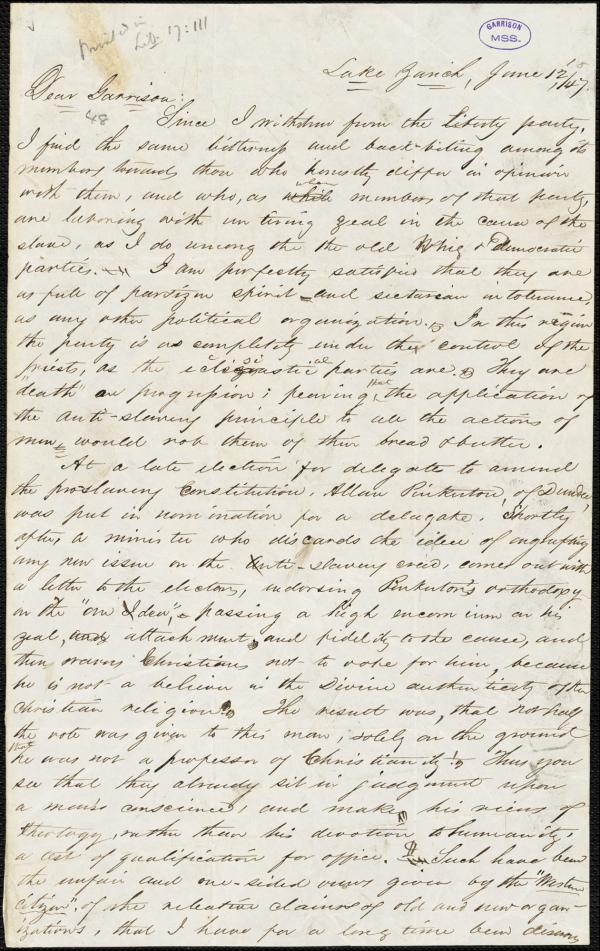 Printed in
Lib. 17:111
GARRISON
MSS.
Lake Zurich, June 12/47.
Dear Garrison:
48
Since I withdrew from the Liberty party,
I find the same bitterness and back-biting among its
members towards those who honestly differ in opinion
with them, and who, as while when members of that party,
are laboring with untiring zeal in the cause of the
slave, as I do among the the old Whig & Democratic
parties. I am perfectly satisfied that they are
as full of partizan spirit and sectarian intolerance,
as any other political organization. In this region
the party is as completely under the control of the
priests, as the eclesiastical parties are. They are
"death" on progression; fearing, that the application of
the anti-slavery principle to all the actions of
men, would rob them of their bread & butter.
At a late election for delegates to amend
the pro-slavery Constitution, Allan Pinkerton, of Dundee,
was put in nomination for a delagate. Shortly
after, a minister who discards the idea of engrafting
any new issue on the Anti-slavery creed, comes out with
a letter to the electors, indorsing Pinkerton's orthodoxy
on the "one Idea", passing a high encomium on his
zeal, and attachment, and fidelity to the cause, and
then craves Christians not to vote for him, because
he is not a believer in the Divine authenticity of the
Christian religion! The result was, that not half
the vote was given to this man, solely on the ground
that he was not a professor of Christianity! Thus you
see that they already sit in judgment upon
a man's conscience, and make his views of
theology, rather than his devotion to humanity,
a test of qualification for office. Such have been
the unfair and one-sided views given by the "Western
Citizen", of the relative claims of old and new organ-
izations, that I have for a long time been